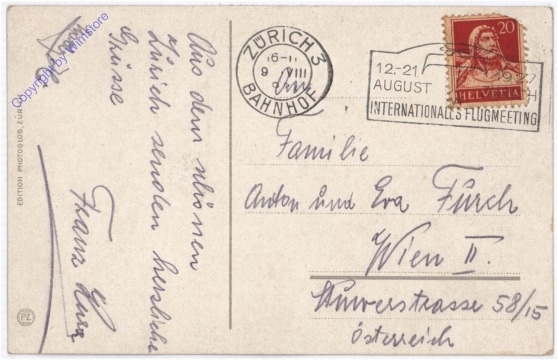 Aus dem schönen
Zürich senden herzliche
Grüsse
Franz
EDITION PHOTOGLOB, ZÜRICH
PZ
Copyright by Winistore
ZÜRICH 3
BAHNHOF
16-11
9 VIII
12-21
AUGUST
1927
INTERNATIONALES FLUGMEETING
20
HELVETIA
An
Familie
Anton und Eva Fürch
Wien II.
58/15
Österreich